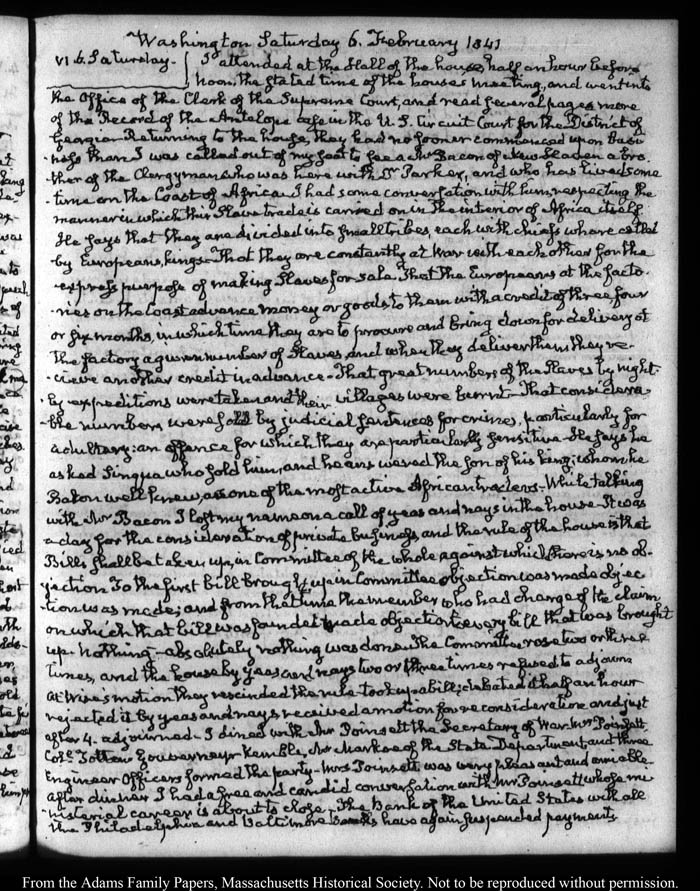 Washington Saturday 6. February 1841
VI. 6. Saturday. I attended at the Hall of the house, half an hour before
noon, the stated time of the house's meeting, and went into
the Office of the Clerk of the Supreme Court, and read several pages more
of the Record of the Antelope case in the U.S. Circuit Court for the District of
Georgia. Returning to the house, they had no sooner commenced upon busi-
ness than I was called out of my seat to see a Mr Bacon of New Haven a bro-
ther of the Clergyman who was here with Dr Parker, and who has lived some
time on the Coast of Africa. I had some conversation with him, respecting the
manner in which this Slave trade is carried on in the interior of Africa itself
He says that they are divided into small tribes, each with chiefs who are called
by Europeans, kings. That they are constantly at War with each other for the
express purpose of making Slaves for sale. That the Europeans at the facto-
ries on the Coast advance money or goods to them with a credit of three, four
or six months, in which time they are to procure and bring down for delivery at
the factory a given number of Slaves, and when they deliver them they re-
cieve another credit in advance. That great numbers of the Slaves by night
by expeditions were taken and their villages were burnt. That considera-
ble numbers were sold by judicial sentences for crimes, particularly for
adultery: an offence for which they are particularly sensitive. He says he
asked Singua who sold him, and he answered the son of his king; whom he
Bacon well knew, as one of the most active African traders. While talking
with Mr Bacon I lost my name on a call of yeas and nays in the house. It was
a day for the consideration of private business, and the rule of the house is that
Bills shall be taken up, in Committee of the whole against which there is no ob-
jection. To the first bill brought up in Committee objection was made objec-
tion was made; and from that time the member who had charge of the claim
on which that bill was founded made objection to every bill that was brought
up. Nothing—absolutely nothing was done. The Committee rose two or three
times, and the house by yeas and nays two or three times refused to adjourn
At Wise's motion they rescinded the rule. took up a bill; debated it half an hour
rejected it by yeas and nays received a motion for reconsideration and just
after 4. adjourned. I dined with Mr Poinsett the Secretary of War. Mrs Poinsett
Coll. Totten Gouverneur Kemble, Mr Markoe of the State Department and three
Engineer Officers formed the party. Mrs Poinsett was very pleasant and amiable.
After dinner I had a free and candid conversation with Mr Poinsett, whose mi-
nisterial career is about to close. The Bank of the United States with all
the Philadelphia and Baltimore banks have again suspended payments
From the Adams Family Papers, Massachusetts Historical Society. Not to be reproduced without permission.